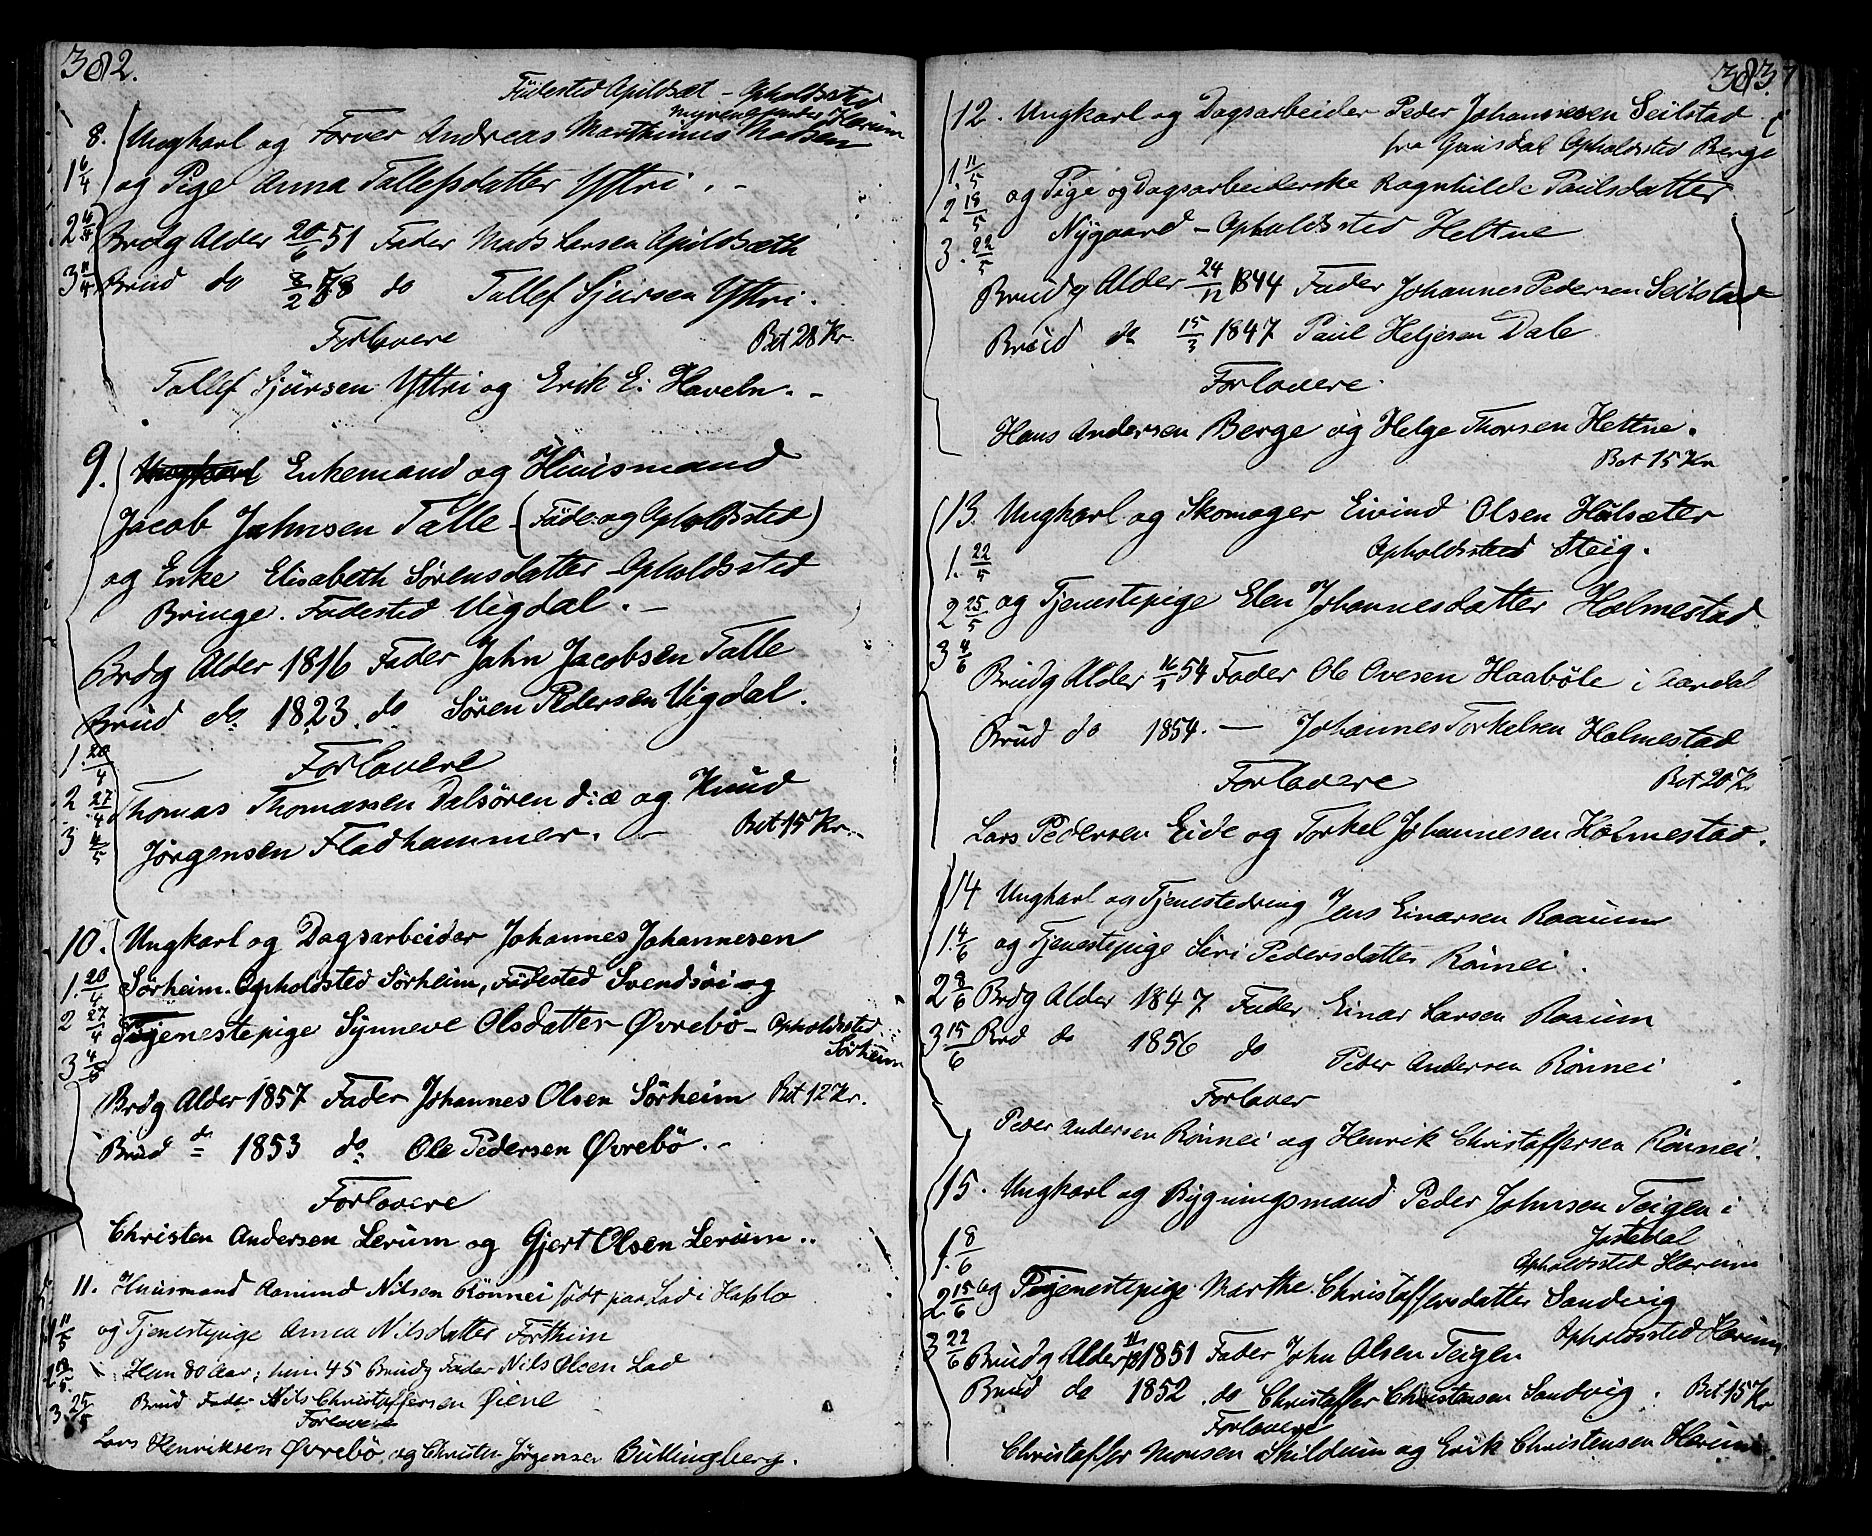 382.
Fødested Apildsæt - Opholdssted
Harum
8. Ungkarl og Farver Andreas Marthinus Madsen
1 6/4 og Pige Anna Tallefsdatter Yttri. -
2 Brdg Alder 20/6 51 Fader Mads Larsen Apildsæth
3 11/4 Brud do 58 do Tallef Sjursen Yttri.
Forlovere Bet 28 Kr.
Tallef Sjursen Yttri og Erik E. Haveln. -
9. Ungkarl Enkemand og Huusmand
Jacob Jahnsen Talle (Føde- og Opholdssted)
og Enke Elisabeth Sørensdatter Opholdssted
Bringe. Fødested Vigdal. -
Brdg Alder 1816 Fader Jahn Jacobsen Talle
Brud do 1823. do Søren Pedersen Vigdal.
1. 20/4 Forlovere
2 27/4 Thomas Thomassen Dalsøren d:æ og Knud
3 4/5 Jørgensen Fladhammer. - Bet 15 Kr.
10. Ungkarl og Dagsarbeider Johannes Johannesen
1. 20/4 Sørheim. Opholdsted Sørheim, Fødested Svendsøi og
2 27/4 Tjenestepige Synneve Olsdatter Øvrebø - Opholdssted
3 4/5 Sørheim
Brdg Alder 1857 Fader Johannes Olsen Sørheim Bet 12 Kr.
Brud do 1853 do Ole Pedersen Øvrebø. -
Forlovere
Christen Andersen Lerum og Gjert Olsen Lerum..
11. Huusmand Aamund Nilsen Rønnei født paa Lad i Hafslo
1 11/5 og Tjenestepige Anna Nilsdatter Fortheim
2 18/5 Han 80 Aar; hun 45 Brudg Fader Nils Olsen Lad
Brud Fader Nils Christoffersen Øiene
3. 25/5 Forlovere
Lars Henriksen Øvrebø og Christen Jørgensen Buttingberg.
383
12. Ungkarl og Dagsarbeider Peder Johannesen Seilstad
fra Gausdal Opholdssted Berge
1. 11/5 og Pige og Dagsarbeiderske Ragnhilde Paulsdatter
2 18/5 Nygaard - Opholdssted Heltne
3. 22/5
Brudg Alder 24/12 1844 Fader Johannes Pedersen Seilstad
Brud do 15/3 1847 Paul Heljesen Dale
Forlovere.
Hans Andersen Berge og Helge Thorsen Heltne.
Bet 15 Kr
13. Ungkarl og Skomager Eivind Olsen Hulsæter
1. 22/5 Opholdssted Steig.
2 25/5 og Tjenestepige Elen Johannesdatter Holmestad.
3 4/6
Brudg Alder 54 Fader Ole Ovesen Haabøle i Aardal
Brud do 1854. - Johannes Torkelsen Holmestad
Forlovere Bet 20 Kr
Lars Pedersen Eide og Torkel Johannesen Holmestad.
14 Ungkarl og Tjenestedreng Jens Einarsen Raaum
1. 4/6 og Tjenestepige Siri Pedersdatter Rønnei.
2 8/6 Brdg Alder 1847 Fader Einar Larsen Raaum
3 15/6 Brd do 1856 do Peder Andersen Rønnei
Forlover
Peder Andersen Rønnei og Henrik Christoffersen Rønnei.
15. Ungkarl og Bygningsmand Peder Johnsen Teigen i
Jostedal
1. 8/6 Opholdssted Harum
2 15/6 og Tjenestepige Marthe Christoffersdatter Sandvig
Opholdssted Harum
3 22/6 Brudg Alder 1851 Fader John Olsen Teigen
Brud do 1852 do Christoffer Christensen Sandvig. Bet 15 Kr
Forlovere
Christoffer Monsen Skildum og Erik Christensen Harum.